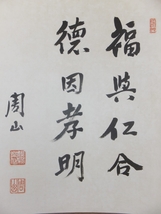 福與仁合
德因孝明
周山